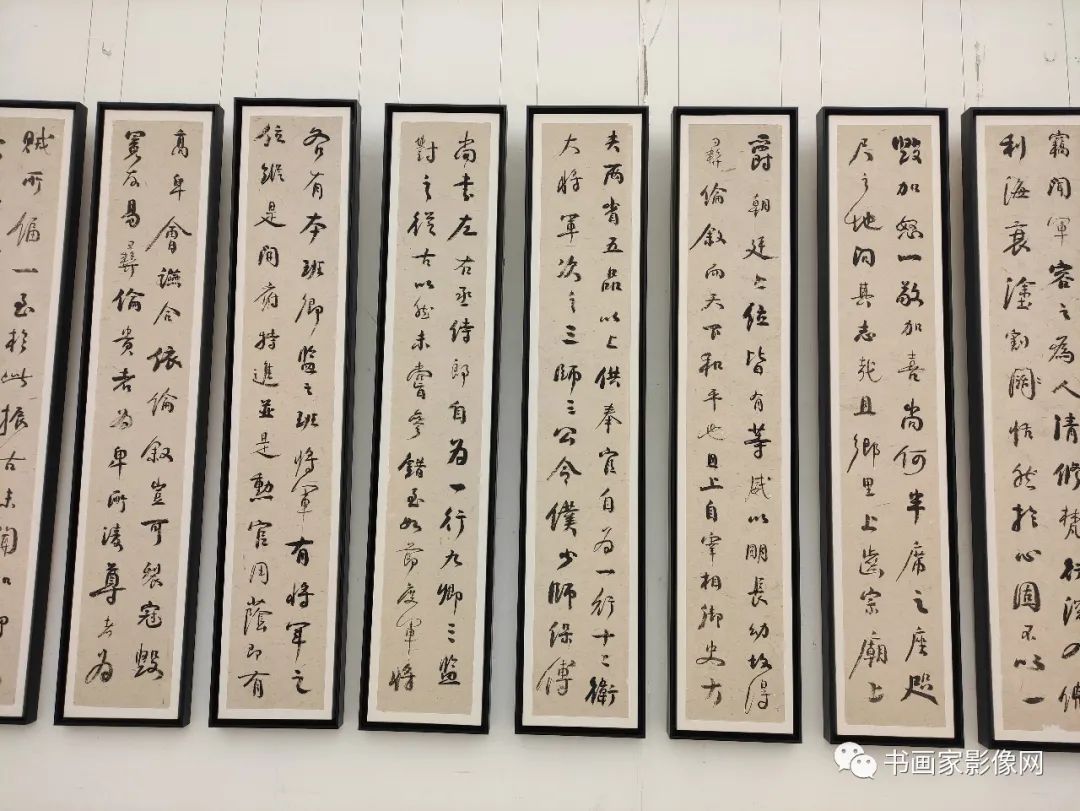 竊聞軍容之為人清修梵行深入佛
利海衰塗割闕恬然於心固不以一
毀加怒一敬加喜尚何半席之座咫
尺之地汩其志哉且鄉里上齒宗廟上
爵朝廷上位皆有等威以明長幼故得
彝倫敘而天下和平也且上自宰相御史大
夫兩省五品以上供奉官自為一行十二衛
大將軍次之三師三公令僕少師保傅
尚書左右丞侍郎自為一行九卿三監
對之從古以然未嘗參錯至如節度軍將
各有本班卿監之班將軍有將軍之
位縱是開府特進並是勳官用蔭即有
高卑會讌合依倫敘豈可裂冠毀
冕反易彝倫貴者為卑所淩尊者為
賊所偪一至於此振古未聞
书画家影像网